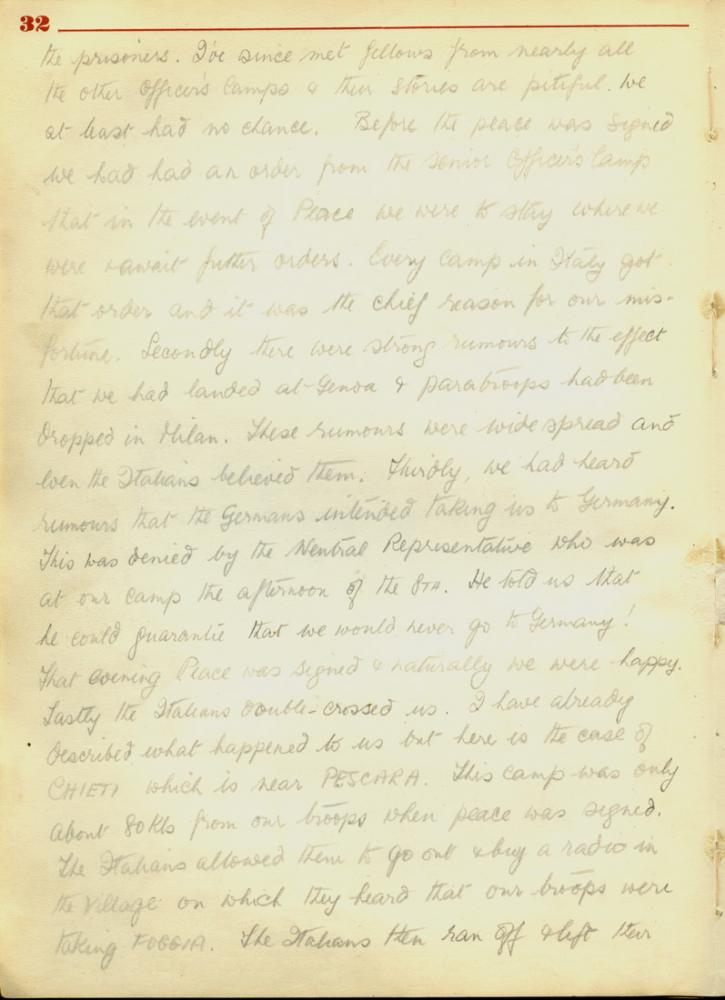 32
the prisoners. I've since met fellows from nearly all
the other Officer's Camps & their stories are pitiful. We
at least had no chance. Before the peace was signed
we had had an order from the senior Officer's Camp
that in the event of Peace we were to stay where we
were & await further orders. Every camp in Italy got
that order and it was the chief reason for our mis-
fortune. Secondly there were strong rumours to the effect
that we had landed at Genoa & parabroops had been
dropped in Milan. These rumours were widespread and
even the Italians believed them. Thirdly, we had heard
rumours that the Germans intended taking us to Germany.
This was denied by the Neutral Representative who was
at our camp the afternoon of the 8TH. He told us that
he could guarantie that we would never go to Germany!
That evening Peace was signed & naturally we were happy.
Lastly the Italians double-crossed us. I have already
described what happened to us but here is the case of
CHIETI which is near PESCARA. This camp was only
about 80 Kls from our troops when peace was signed.
The Italians allowed them to go out & buy a radio in
the village on which they heard that our troops were
taking FOGGIA. The Italians then ran off & left their